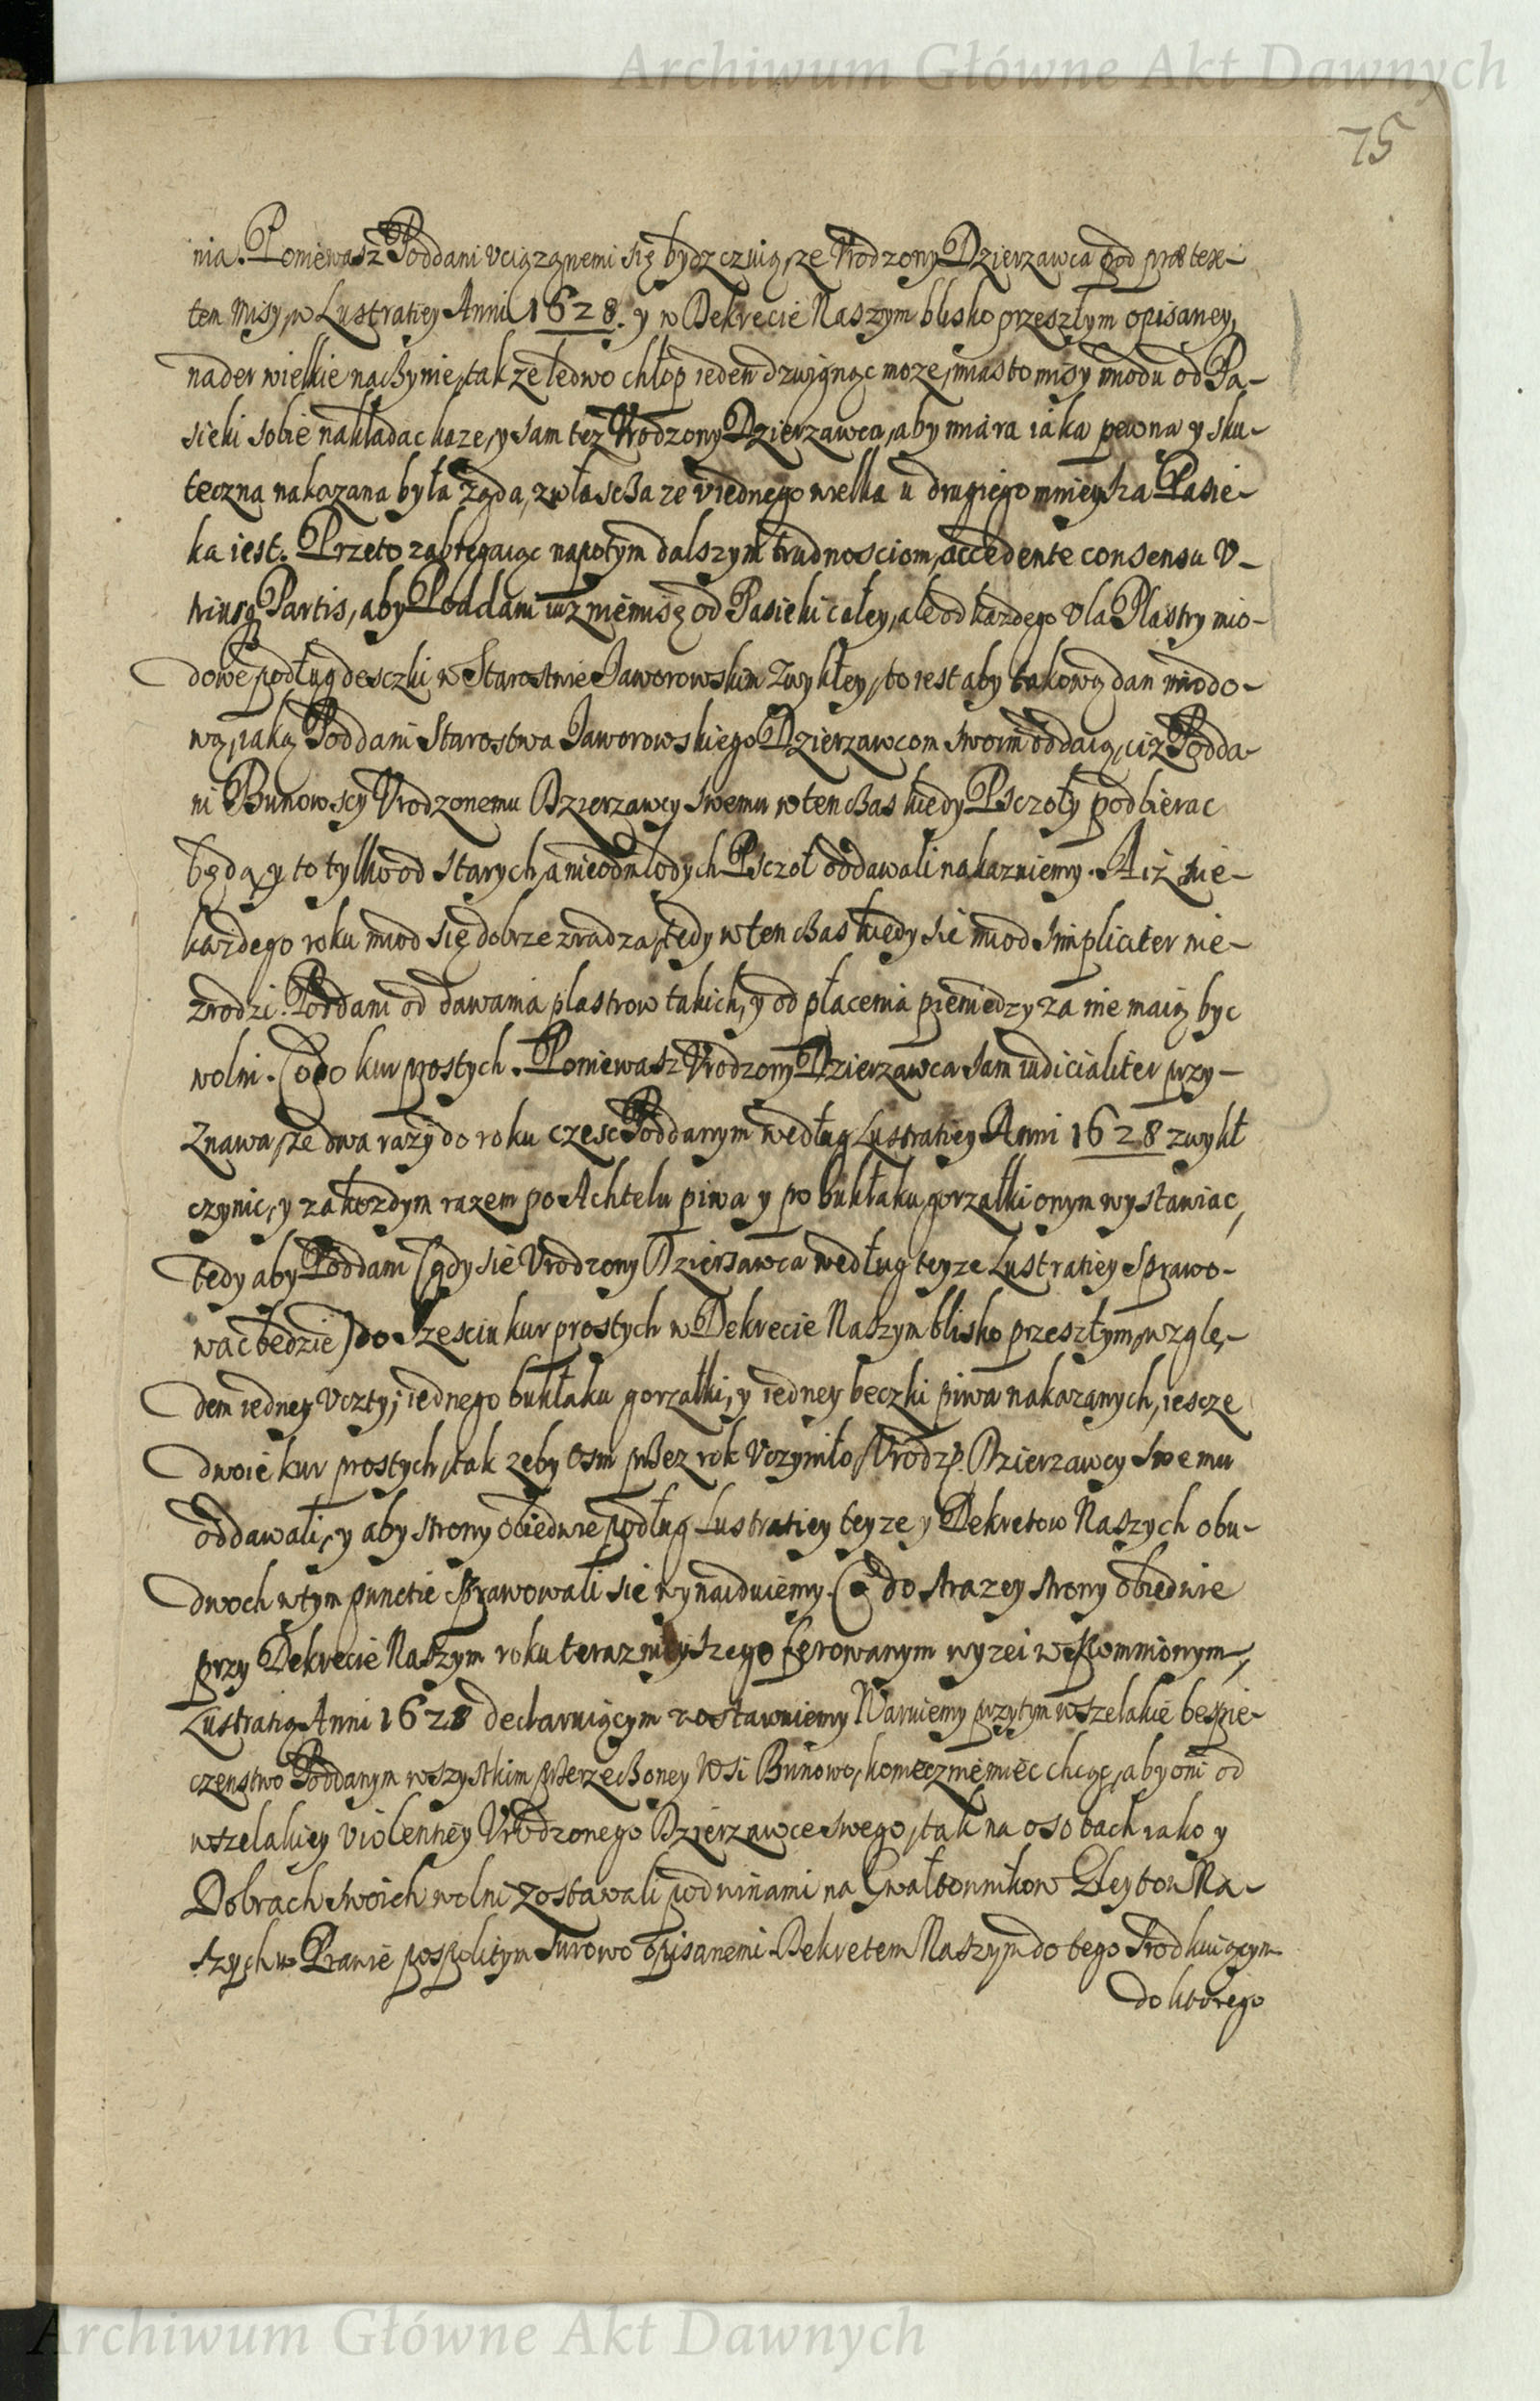 Archiwum Główne Akt Dawnych
75
nia. Poniewasz Poddani vciązonemi się bydz czuią, ze Vrodzony Dzierzawca pod prætex-
tem misy, w Lustratiey Anni 1628. y w Dekrecie Naszym blisko przeszłym opisaney,
nader wielkie naczynie, tak ze ledwo chłop ieden dzwignąc moze, miasto misy miodu od Pa-
sieki sobie nakładac kaze, y sam tez Vrodzony Dzierzawca, aby miara iaka pewna y sku-
teczna nakazana była ząda, zwłascza ze v iednego wielka u drugiego mnieysza Pasie-
ka iest. Przeto zabiegaiąc napotym dalszym trudnosciom, accedente consensu V-
triusq Partis, aby Poddani iuz nie misę od Pasieki całey, ale od kazdego Vla Plastry mio-
dowe podług desczki w Starostwie Jaworowskim zwykłey, to iest aby takową dan miodo-
wą, iaką Poddani Starostwa Jaworowskiego Dzierzawcom swoim oddaią, ciz Podda-
ni Bunowscy Vrodzonemu Dzierzawcy swemu w ten czas kiedy Psczoły podbierac
będą, y to tylko od starych, a nie od młodych Psczoł oddawali nakazuiemy. A iz nie-
kazdego roku miod się dobrze zradza, tedy w ten czas kiedy sie miod simpliciter nie-
zrodzi. Poddani od dawania plastrow takich, y od płacenia pieniedzy za nie maią byc
wolni. Co do kur prostych. Poniewasz Vrodzony Dzierzawca sam iudicialiter przy-
znawa, ze dwa razy do roku czesc Poddanym według Lustratiey Anni 1628 zwykł
czynic, y za kozdym razem po Achtelu piwa y po bukłaku gorzałki onym wystawiac,
tedy aby Poddani (gdy sie Vrodzony Dzierzawca według teyze Lustratiey sprawo-
wac bedzie) do szesciu kur prostych w Dekrecie Naszym blisko przeszłym, wzglę-
dem iedney Vczty, iednego bukłaku gorzałki, y iedney beczki piwa nakazanych, iescze
dwoie kur prostych, tak zeby osm przez rok Vczyniło, Vrodz. Dzierzawcy swemu
oddawali, y aby strony obiedwie podług Lustratiey teyze y Dekretow Naszych obu-
dwoch w tym punctie sprawowali sie wynayduiemy. Co do strazey strony obiedwie
przy Dekrecie Naszym roku teraznieyszego ferowanym wyzei wspomnionym,
Lustratią Anni 1628 declaruiącym zostawuiemy. Waruiemy przytym wszelakie bespie-
czenstwo Poddanym wszystkim przerzeczoney Wsi Bunowo, koniecznie miec chcąc, aby oni od
wszelakiey violentiey Vrodzonego Dzierzawce swego, tak na osobach iako y
Dobrach swoich wolni zostawali pod winami na Gwałtownikow Gleytow Na-
szych w Prawie pospolitym surowo opisanemi. Dekretem Naszym do tego srodkuiącym
do ktorego
Archiwum Główne Akt Dawnych